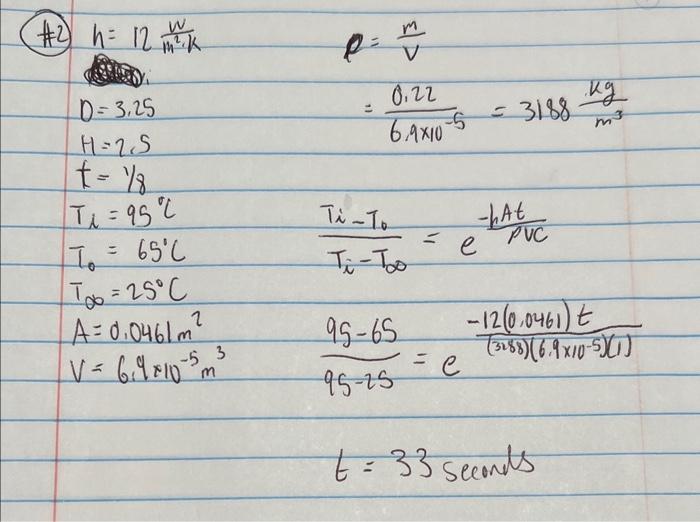 #2 h = 12 W/m²·K
D = 3.25
H = 2.5
t = 1/8
Ti = 95°C
To = 65°C
T∞ = 25°C
A = 0.0461 m²
V = 6.9×10⁻⁵ m³
ρ = m/V
= 0.22/6.9×10⁻⁵ = 3188 kg/m³
(Ti - To)/(Ti - T∞) = e^(-hAt/ρVC)
(95-65)/(95-25) = e^(-12(0.0461)t/(3288)(6.9×10⁻⁵)(1))
t = 33 seconds